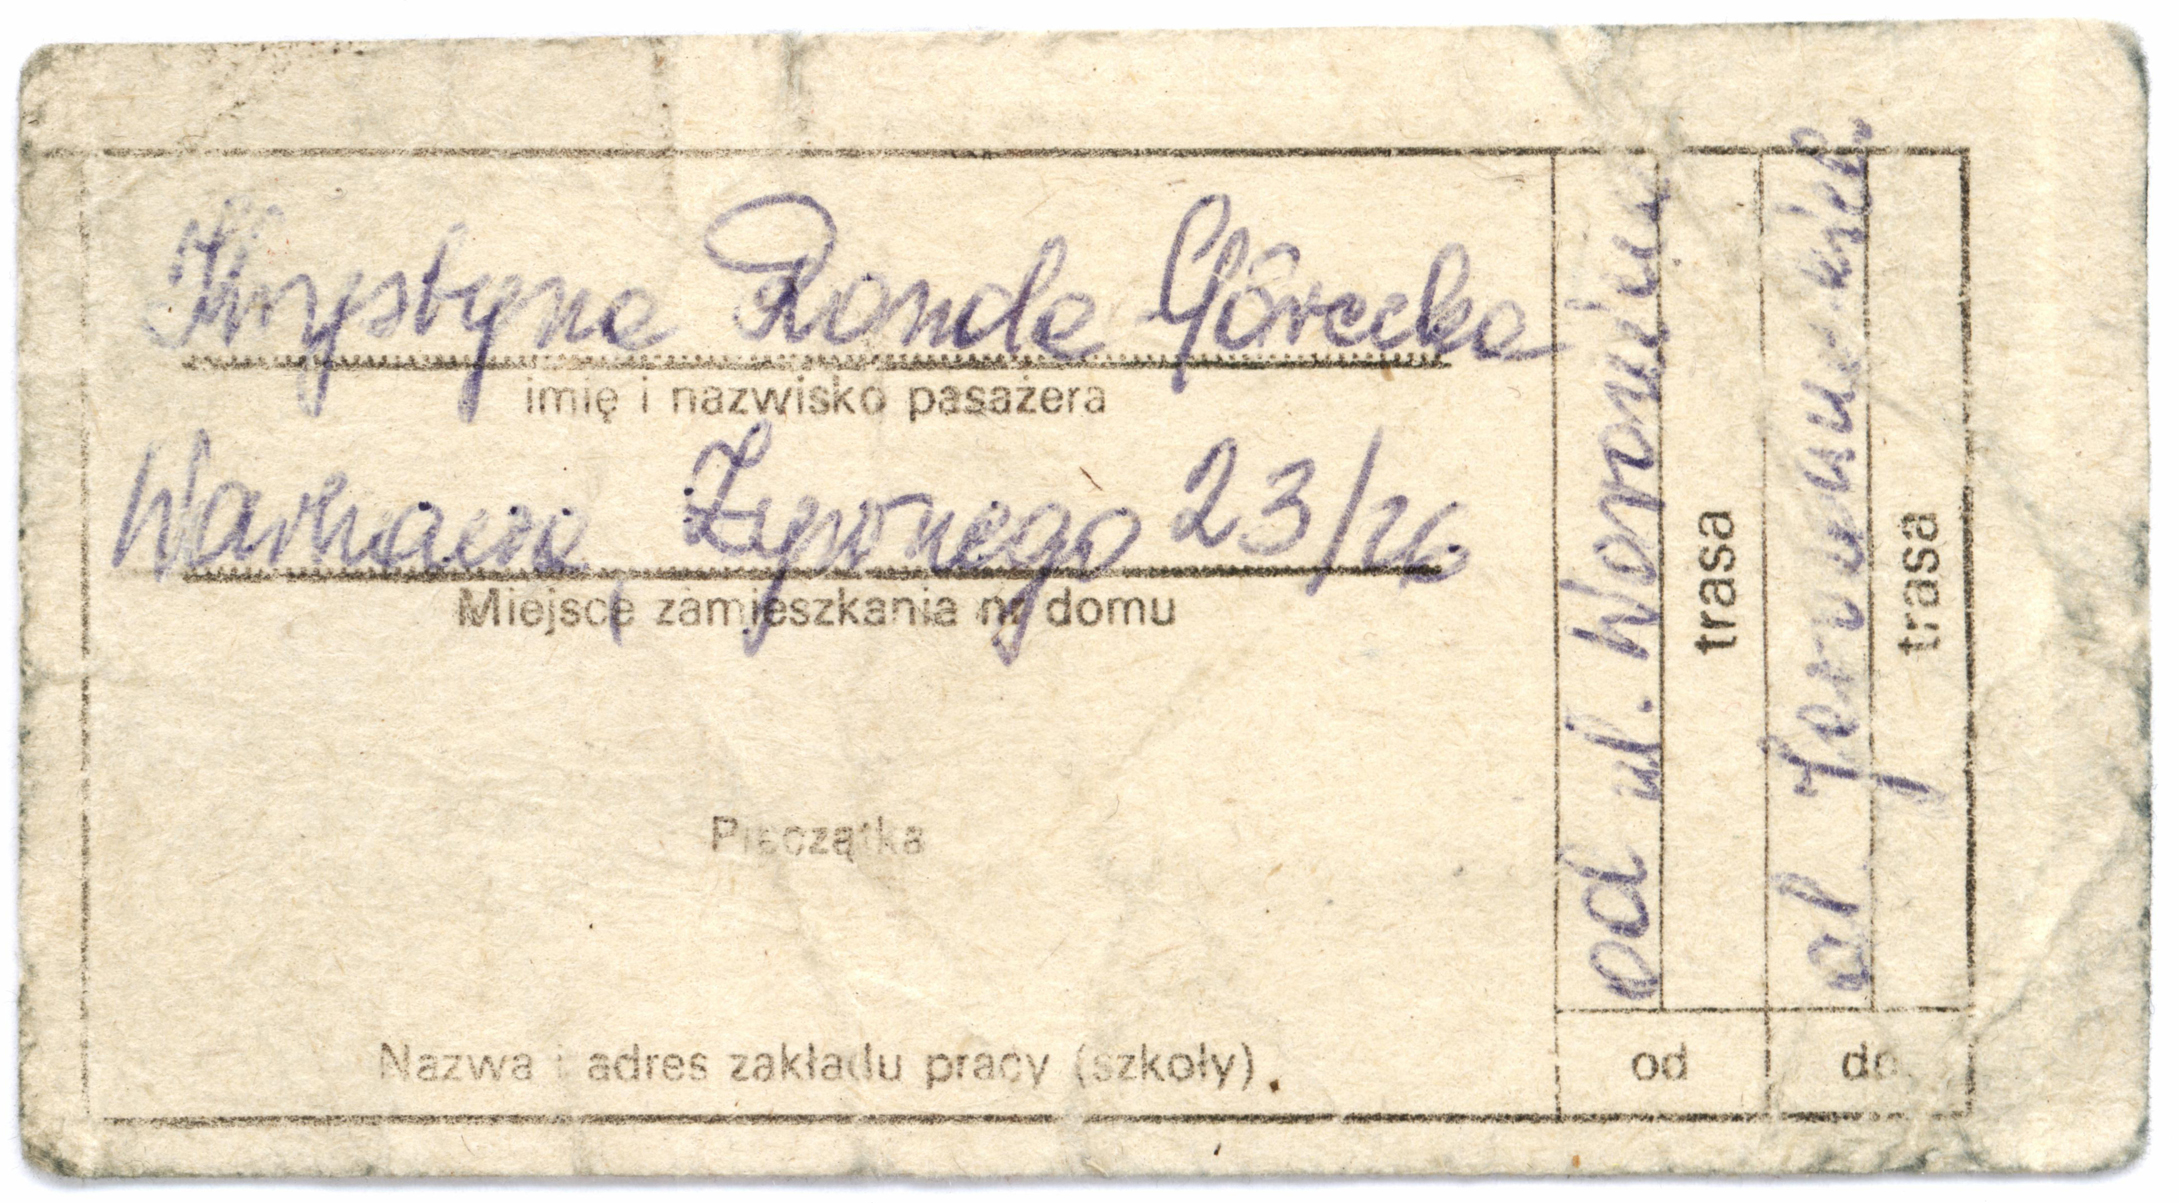 Krystyna Ronda Górecka
imię i nazwisko pasażera
Warszawa, Żywnego 23/26
Miejsce zamieszkania nr domu
Pieczątka
Nazwa i adres zakładu pracy (szkoły).
od ul. Woronicza
trasa
od
al Jerozolimskich
trasa
do